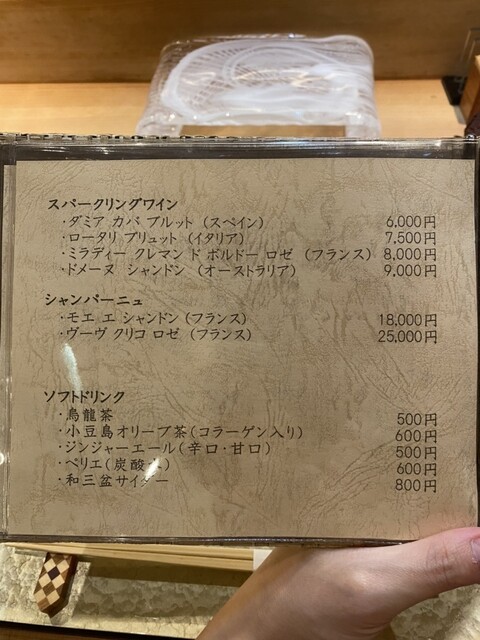 スパークリングワイン
・ダミア カバ ブルット (スペイン) 6,000円
・ロータリ ブリュット (イタリア) 7,500円
・ミラディー クレマン ド ボルドー ロゼ (フランス) 8,000円
・ドメーヌ シャンドン (オーストラリア) 9,000円
シャンパーニュ
・モエ エ シャンドン (フランス) 18,000円
・ヴーヴ クリコ ロゼ (フランス) 25,000円
ソフトドリンク
・烏龍茶 500円
・小豆島オリーブ茶(コラーゲン入り) 600円
・ジンジャーエール(辛口・甘口) 500円
・ペリエ(炭酸水) 600円
・和三盆サイダー 800円